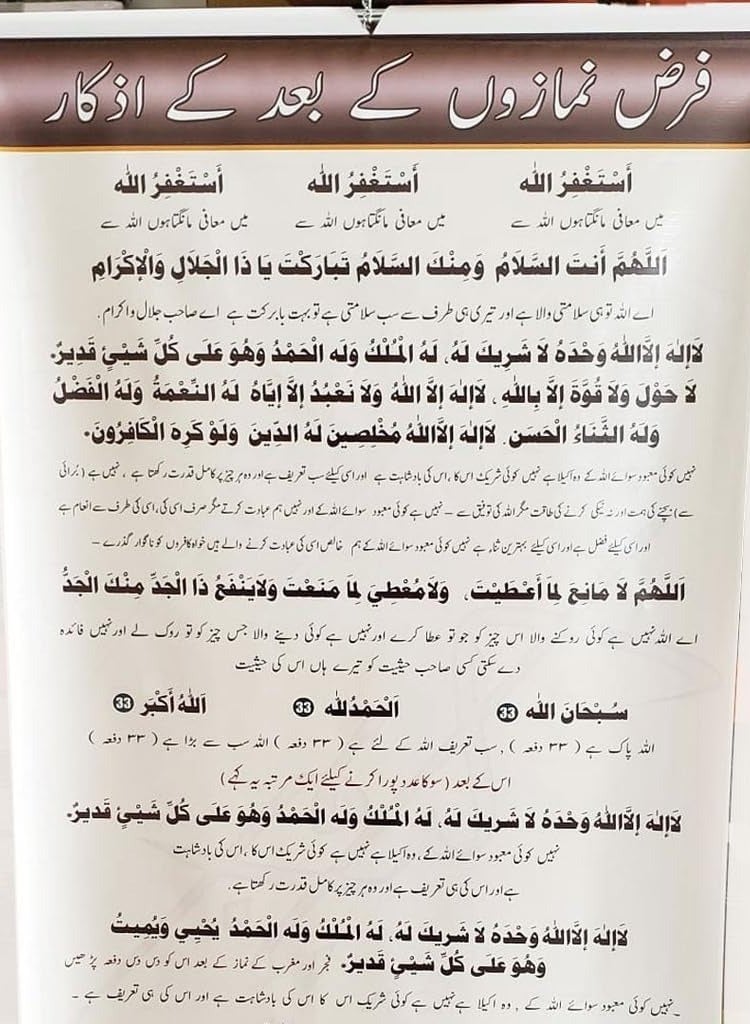 فرض نمازوں کے بعد کے اذکار
أَسْتَغْفِرُ الله أَسْتَغْفِرُ الله أَسْتَغْفِرُ الله
میں معافی مانگتا ہوں اللہ سے میں معافی مانگتا ہوں اللہ سے میں معافی مانگتا ہوں اللہ سے
اَللَّهُمَّ أَنتَ السَّلَامُ وَمِنْكَ السَّلَامُ تَبَارَكْتَ يَا ذَا الْجَلَالِ وَالْإِكْرَامِ
اے اللہ تو ہی سلامتی والا ہے اور تیری ہی طرف سے سب سلامتی ہے تو بہت بابرکت ہے اے صاحب جلال واکرام.
لَاإِلٰهَ إِلَّااللهُ وَحْدَهُ لَا شَرِيكَ لَهُ، لَهُ الْمُلْكُ وَلَه الْحَمْدُ وَهُوَ عَلَى كُلِّ شَيْئٍ قَدِيرٌ.
لَا حَوْلَ وَلَا قُوَّةَ إِلَّا بِاللهِ ، لَاإِلٰهَ إِلَّا اللهُ وَلَا نَعْبُدُ إِلَّا إِيَّاهُ لَهُ النِّعْمَةُ وَلَهُ الْفَضْلُ
وَلَهُ الثَّنَاءُ الْحَسَنَ. لَاإِلٰهَ إِلَّااللهُ مُخْلِصِينَ لَهُ الدِّينَ وَلَوْ كَرِهَ الْكَافِرُونَ.
نہیں کوئی معبود سوائے اللہ کے وہ اکیلا ہے نہیں کوئی شریک اس کا ، اس کی بادشاہت ہے اور اسی کیلئے سب تعریف ہے اور وہ ہر چیز پر کامل قدرت رکھتا ہے ، نہیں ہے ( برائی
سے ) بچنے کی ہمت اور نہ نیکی کرنے کی طاقت مگر اللہ کی توفیق سے – نہیں ہے کوئی معبود سوائے اللہ کے اور نہیں ہم عبادت کرتے مگر صرف اسی کی، اسی کی طرف سے انعام ہے
اور اسی کیلئے فضل ہے اور اسی کیلئے بہترین ثناء ہے نہیں کوئی معبود سوائے اللہ کے ہم خالص اسی کی عبادت کرنے والے ہیں خواہ کافروں کو ناگوار گذرے –
اَللَّهُمَّ لَا مَانِعَ لِمَا أَعْطَيْتَ، وَلَا مُعْطِيَ لِمَا مَنَعْتَ وَلَايَنْفَعُ ذَا الْجَدِّ مِنْكَ الْجَدُّ
اے اللہ نہیں ہے کوئی روکنے والا اس چیز کو جو تو عطا کرے اور نہیں ہے کوئی دینے والا جس چیز کو تو روک لے اور نہیں فائدہ
دے سکتی کسی صاحب حیثیت کو تیرے ہاں اس کی حیثیت
سُبْحَانَ الله 33 اَلْحَمْدُلله 33 اَللهُ أَكْبَر 33
اللہ پاک ہے ( ۳۳ دفعہ ) , سب تعریف اللہ کے لئے ہے ( ۳۳ دفعہ ) اللہ سب سے بڑا ہے ( ۳۳ دفعہ )
اس کے بعد ( سو کا عدد پورا کرنے کیلئے ایک مرتبہ یہ کہے )
لَاإِلٰهَ إِلَّااللهُ وَحْدَهُ لَا شَرِيكَ لَهُ، لَهُ الْمُلْكُ وَلَه الْحَمْدُ وَهُوَ عَلَى كُلِّ شَيْئٍ قَدِيرٌ.
نہیں کوئی معبود سوائے اللہ کے، وہ اکیلا ہے نہیں ہے کوئی شریک اس کا ، اس کی بادشاہت
ہے اور اس کی ہی تعریف ہے اور وہ ہر چیز پر کامل قدرت رکھتا ہے.
لَاإِلٰهَ إِلَّااللهُ وَحْدَهُ لَا شَرِيكَ لَهُ، لَهُ الْمُلْكُ وَلَه الْحَمْدُ يُحْيِي وَيُمِيتُ
وَهُوَ عَلَى كُلِّ شَيْئٍ قَدِيرٌ. فجر اور مغرب کے نماز کے بعد اس کو دس دس دفعہ پڑھیں
نہیں کوئی معبود سوائے اللہ کے , وہ اکیلا ہے نہیں ہے کوئی شریک اس کا اس کی بادشاہت ہے اور اس کی ہی تعریف ہے -